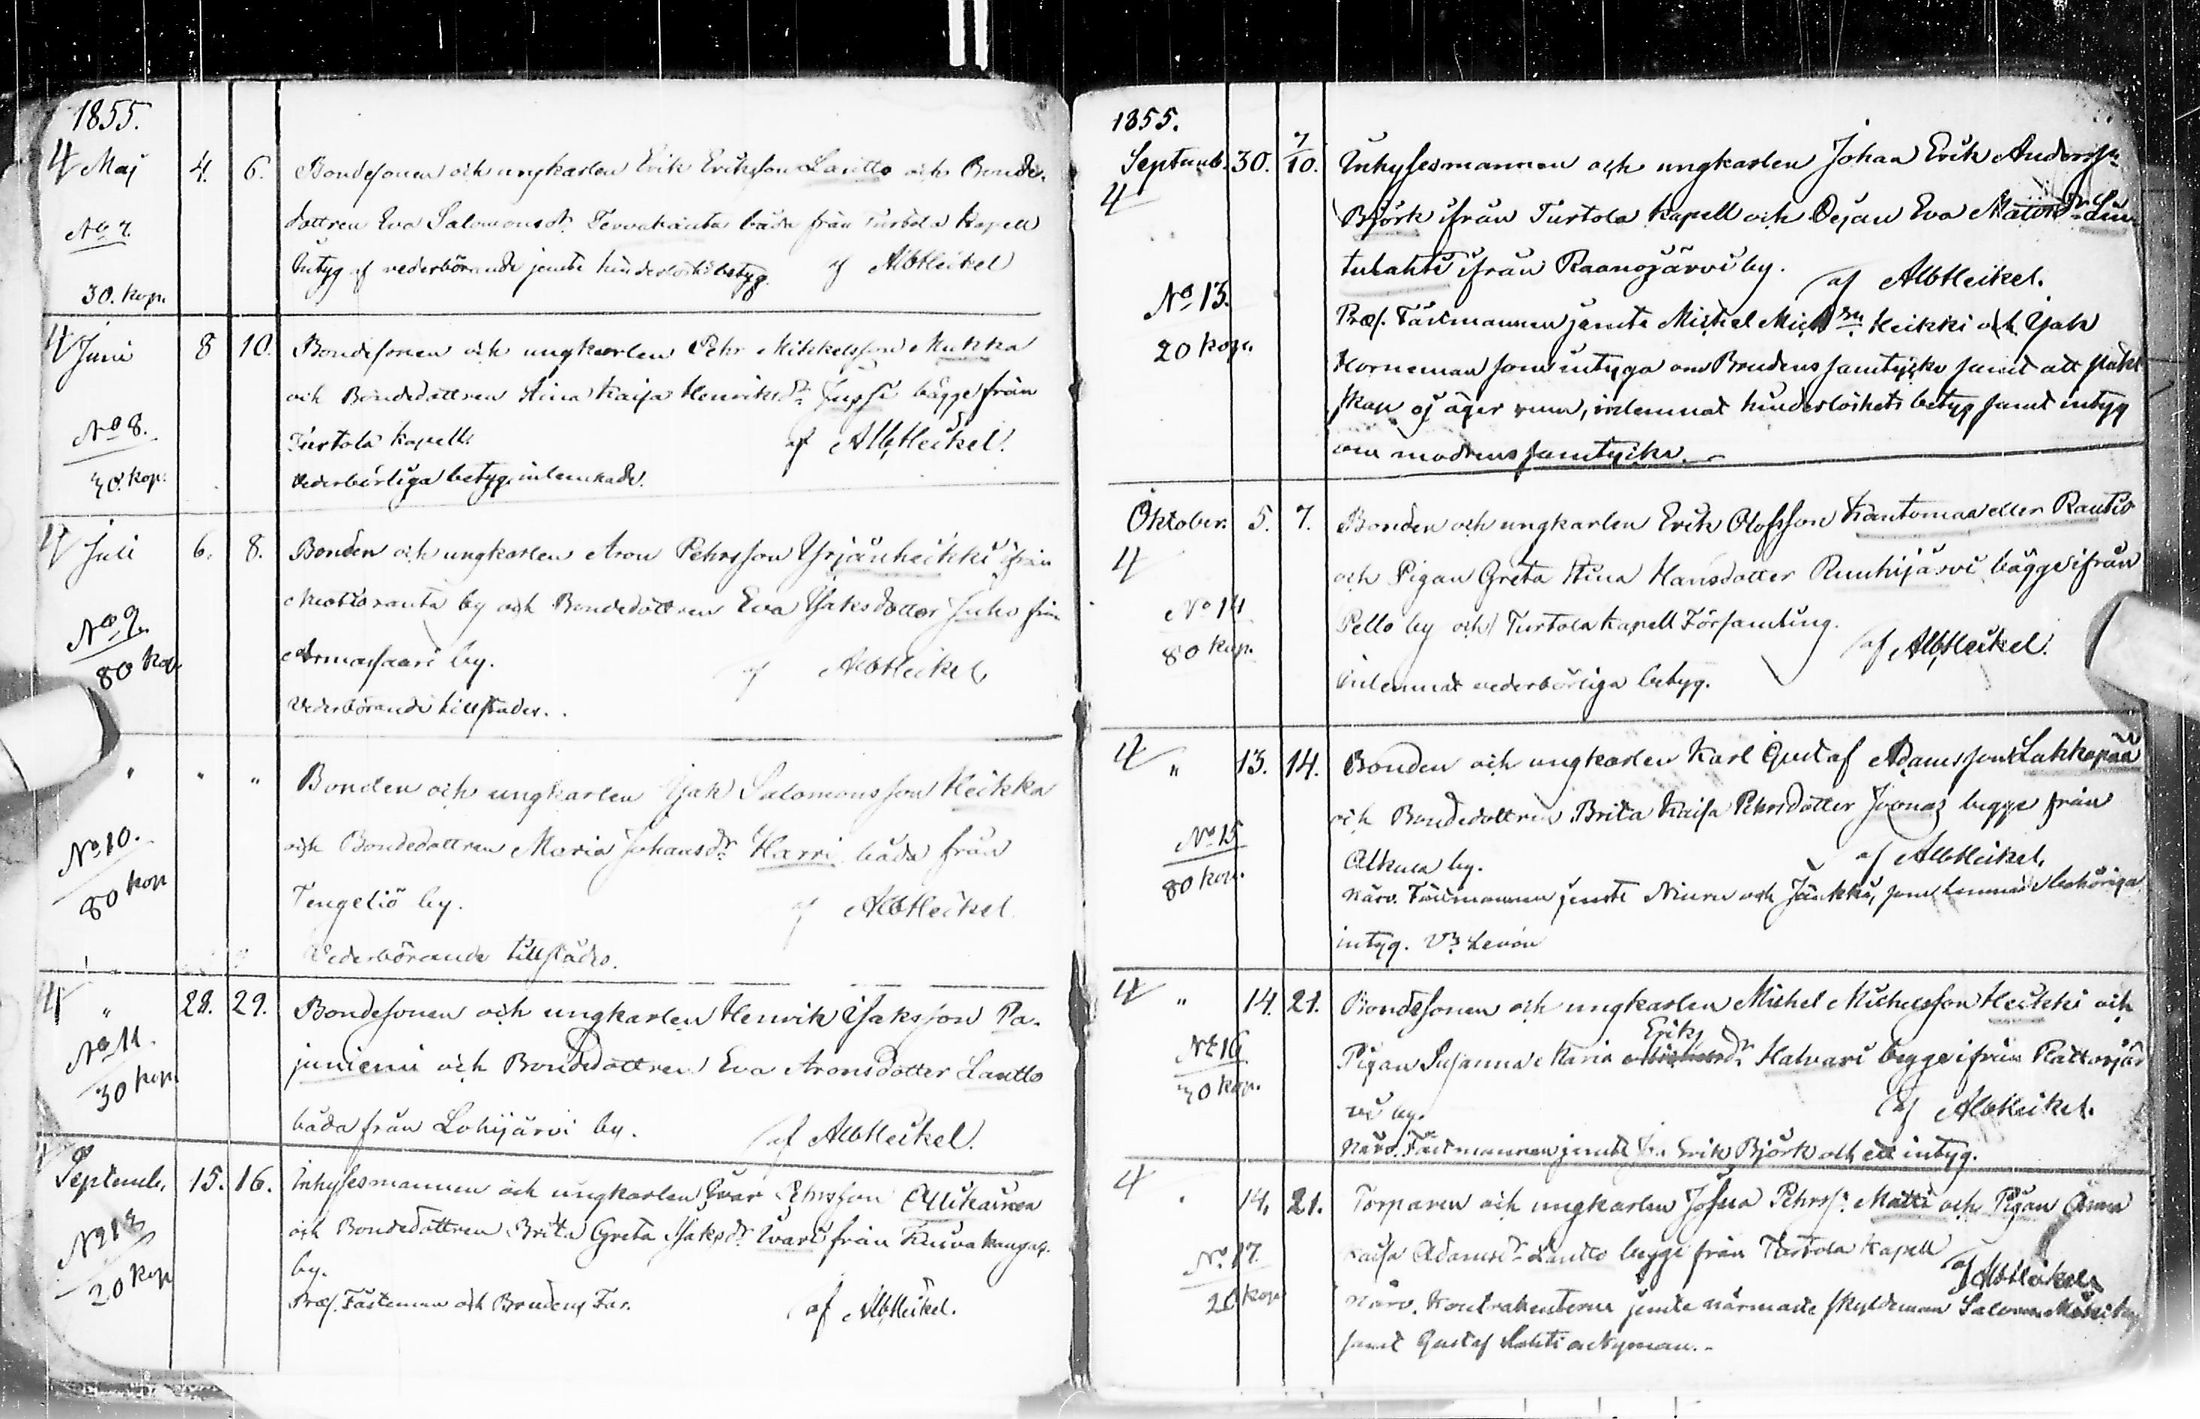 1855.
4 Maj 4. 6. Bondesonen och ungkarlen Erik Eriksson Lantto och Bonde-
No 7. dottren Eva Salomonsdr Tervakanta båda från Turtola Kapell
Intyg af vederbörande jemte hinderlöshetsbetyg. af AlbHeikel
30. kop.
4 Juni 8 10. Bondesonen och ungkarlen Pehr Mikkelsson Mukka
och Bondedottren Stina Kaisa Henriksdr Jupsi bägge från
No 8. Turtola kapell. af AlbHeikel.
30. kop. Vederbörliga betyg inlemnade.
4 Juli 6. 8. Bonden och ungkarlen Aron Pehrsson Yrjänheikki ifrån
No 9. by och Bondedottren Eva Isaksdotter Juho från
80 kop Armassaari by. af AlbHeikel
Vederbörande tillstädes.
" " " Bonden och ungkarlen Isak Salomonsson Heikka
No 10. och Bondedottren Maria Johansdr Harri båda från
80 kop Tengeliö by. af AlbHeikel
Vederbörande tillstädes.
4 " 28. 29. Bondesonen och ungkarlen Henrik Isaksson Pa-
No 11. juniemi och Bondedottren Eva Aronsdotter Lantto
30 kop båda från Lohijärvi by. af AlbHeikel.
Septemb. 15. 16. Inhysesmannen och ungkarlen Ivar Pehrsson
No 12 och Bondedottren Brita Greta Isaksdr Ivari från Kuivakangas
by.
20 kop Præs. Fästeman och Brudens Far. af AlbHeikel.
1855.
Septemb. 30. 7/10. Inhysesmannen och ungkarlen Johan Erik Anderssn
4 Björk ifrån Turtola kapell och Dejan Eva Matsdr Lin-
tulahti ifrån Raanojärvi by. af AlbHeikel.
No 13. Præs. Fästmannen jemte Michel Mich sn Heikki och Isak
20 kop. Horneman som intyga om Brudens samtycke samt att släkt-
skap ej äger rum, inlemnat hinderlöshets betyg samt intyg
om modrens samtycke.
Oktober. 5. 7. Bonden och ungkarlen Erik Olofsson Kantomaa eller Rautio
4 och Pigan Greta Stina Hansdotter Ruuhijärvi bägge ifrån
No 14 Pello by och Turtola Kapell Församling.
80 kop. af AlbHeikel.
Inlemnat vederbörliga betyg.
4 " 13. 14. Bonden och ungkarlen Karl Gustaf Adamsson Lakkapää
och Bondedottren Brita Kaisa Pehrsdotter Joonas begge från
No 15 Alkula by. af AlbHeikel.
80 kop. närv. Fästmannen jemte Niura och Jänkki, som lemnade behöriga
intyg.
4 " 14. 21. Bondesonen och ungkarlen Michel Michelsson Heikki och
Eriks
No 16 Pigan Susanna Maria dr Halvari begge ifrån Rattosjär
30 kop. vi by. af AlbHeikel.
närv. Fästmannen jemte Erik Björk och ett intyg.
4 " 14. 21. Torparen och ungkarlen Josua Pehrss. Matti och Pigan Anna
No 17. Kaisa Adamsdr Lantto begge från Turtola Kapell af AlbHeikel.
20 kop närv. Kontrahenterne jemte närmaste skyldeman Salomon
samt Gustaf Lahti o Nyman.